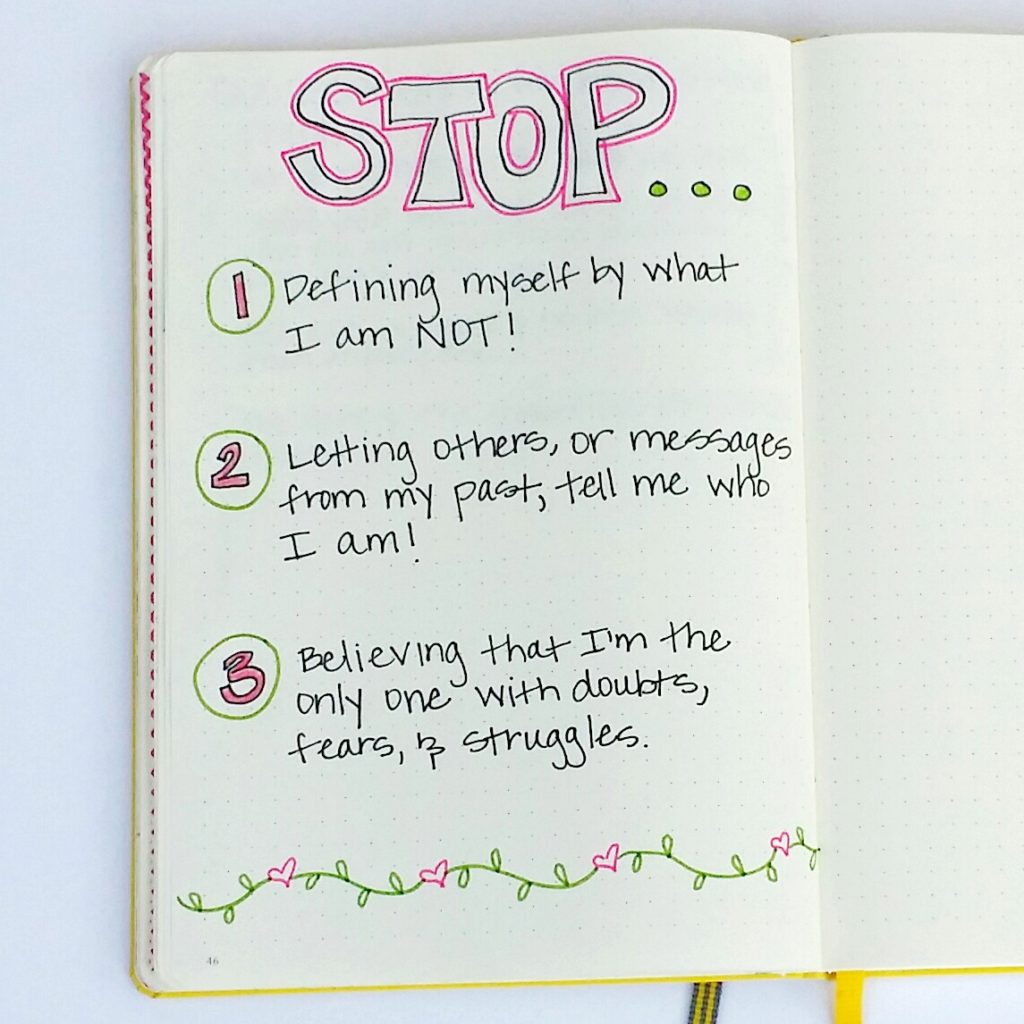 STOP...
1 Defining myself by what
I am NOT!
2 Letting others, or messages
from my past, tell me who
I am!
3 Believing that I'm the
only one with doubts,
fears, & struggles.
46